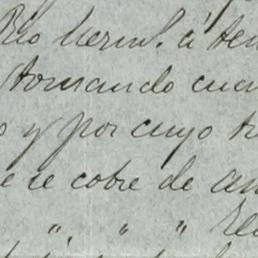 Rdo herm. á ten
tomando cua
o y por cuyo tr
e se cobre de an
" " " El